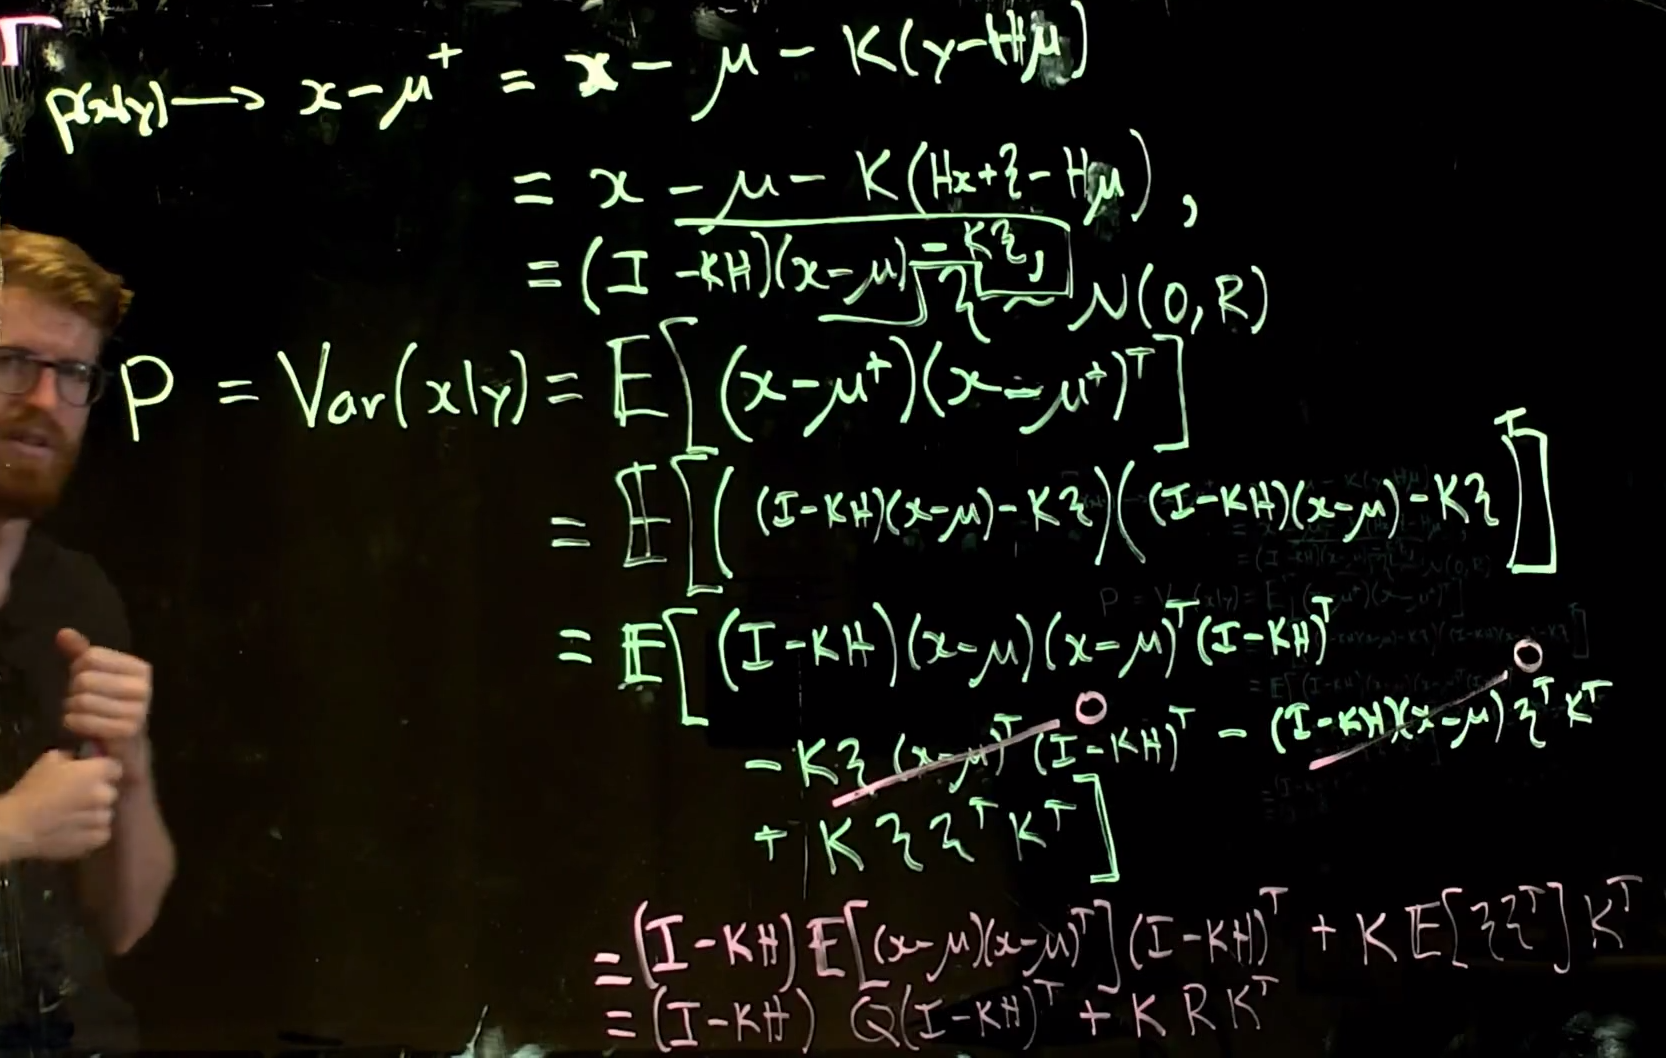 p(x|y) ⟶ x − μ⁺ = x − μ − K(y − Hμ)
= x − μ − K(Hx + ξ − Hμ),
= (I − KH)(x − μ) − Kξ, ξ ~ N(0, R)
P = Var(x|y) = E[(x − μ⁺)(x − μ⁺)ᵀ]
= E[((I − KH)(x − μ) − Kξ)((I − KH)(x − μ) − Kξ]ᵀ
= E[(I − KH)(x − μ)(x − μ)ᵀ(I − KH)ᵀ
− Kξ(x − μ)ᵀ(I − KH)ᵀ 0 − (I − KH)(x − μ)ξᵀKᵀ 0
+ KξξᵀKᵀ]
= (I − KH)E[(x − μ)(x − μ)ᵀ](I − KH)ᵀ + KE[ξξᵀ]Kᵀ
= (I − KH) Q(I − KH)ᵀ + KRKᵀ